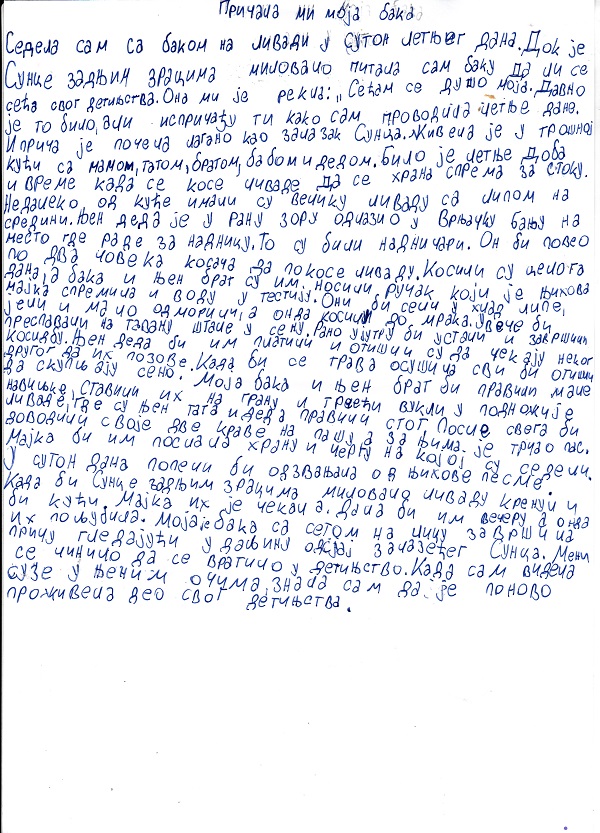 Причала ми моја бака
Седела сам са баком на ливади у сутон летњег дана. Док је
Сунце задњим зрацима миловало питала сам баку да ли се
сећа свог детињства. Она ми је рекла: „Сећам се душо моја. Давно
је то било, али испричаћу ти како сам проводила летње дане.
И прича је почела лагано као залазак Сунца. Живела је у трошној
кући са мамом, татом, братом, бабом и дедом. Било је летње доба
и време када се косе ливаде да се храна спрема за стоку.
Недалеко, од куће имали су велику ливаду са липом на
средини. Њен деда је у рану зору одлазио у Врњачку бању на
место где раде за надницу. То су били надничари. Он би повео
по два човека косача да покосе ливаду. Косили су целога
дана, а бака и њен брат су им носили ручак који је њихова
мајка спремила и воду у тестију. Они би сели у хлад липе,
јели и мало одморили, а онда косили до мрака. Увече би
преспавали на тавану штале у сену. Рано ујутру би устали и завршили
косидбу. Њен деда би им платили и отишли су да чекају неког
другог да их позове. Када би се трава осушила сви би отишли
да скупљају сено. Моја бака и њен брат би правили мале
навиљке, ставили их на грану и трећи вукли у подножије
ливаде, где су њен тата и деда правили стог. После свега би
доводили своје две краве на пашу а за њима је трчао пас.
Мајка би им послала храну и чергу на којој су седели.
У сутон дана полени би одзвањала од њихове песме.
Када би Сунце задњим зрацима миловало ливаду кренули
би кући. Мајка их је чекала. Дала би им вечеру а онда
их пољубила. Моја је бака са сетом на лицу завршила
причу гледајући у даљину одсјај залазећег Сунца. Мени
се чинило да се вратило у детињство. Када сам видела
сузе у њеним очима, знала сам да је поново
проживела део свог детињства.